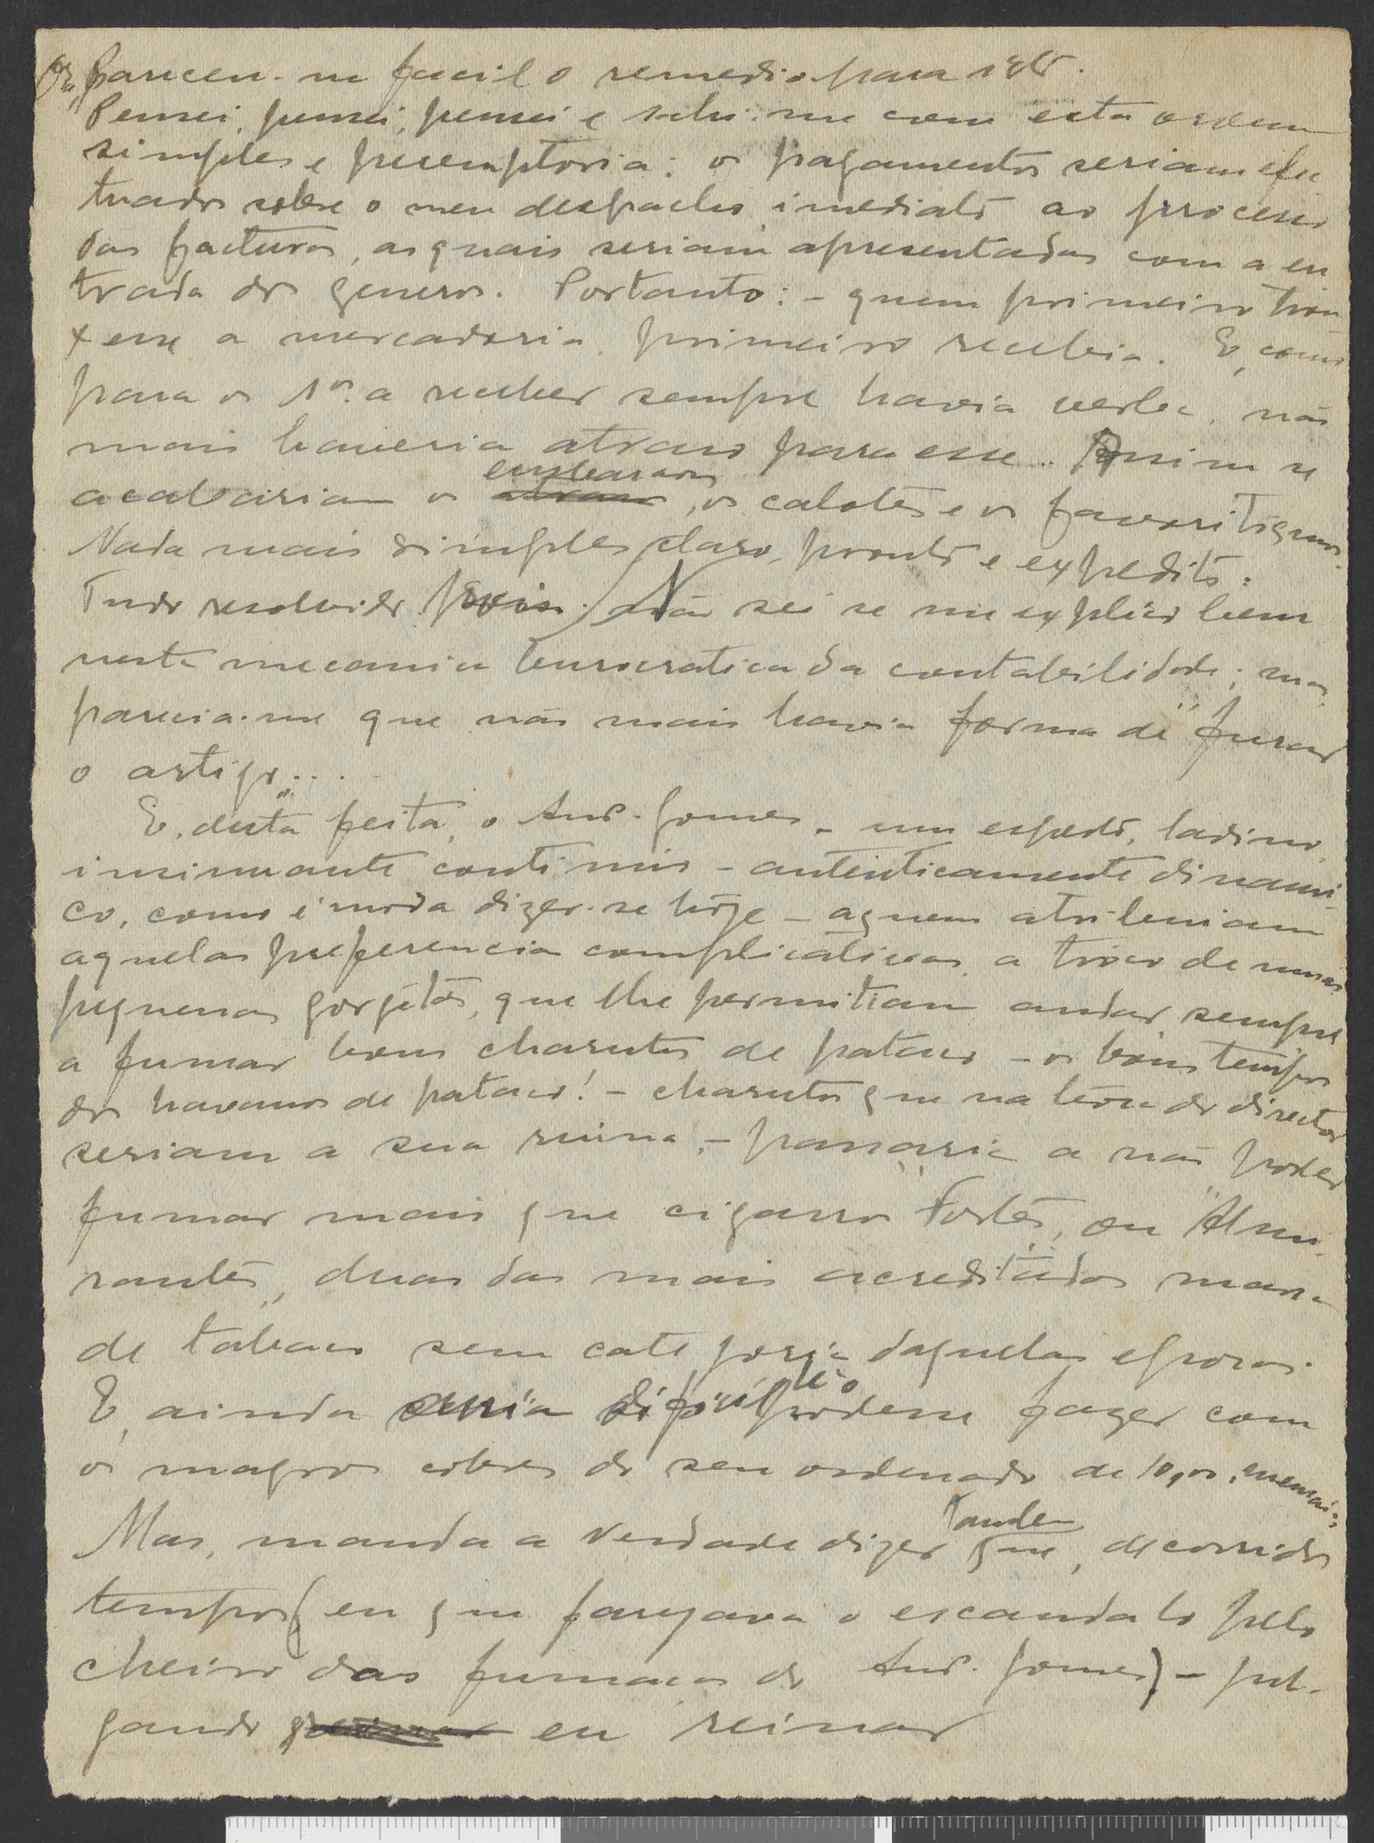 Ora, pareceu-me facil o remedio para isto.
Pensei, pensei, pensei e sahi-me com esta ordem
simples e peremptoria: os pagamentos seriam efec
tuados sobre o meu despacho imediato ao processo
das facturas, as quais seriam apresentadas com a en
trada dos generos. Portanto: - quem primeiro trou
xesse a mercadoria primeiro recebia. E, como
para os 1os. a receber sempre havia verba, não
mais haveria atraso para esse. Assim se
acabariam os embaraços, os calotes e os favoritismos.
Nada mais simples, claro, pronto e expedito.
Tudo resolvido pois. Não sei se me explico bem
nesta mecanica burocratica da contabilidade; mas
parecia-me que não mais havia forma de "furar
o artigo"...
E, desta feita, o Anto. Gomes - um esperto, ladino,
insinuante continuo - autenticamente dinami-
co, como é moda dizer-se hoje - a quem atribuiam
aquelas preferencias complicativas a troco de umas
pequenas gorgetas, que lhe permitiam andar sempre
a fumar bons charutos de pataco - os bons tempos
dos havanos de pataco! - charutos que na boca do director
seriam a sua ruina, - passaria a não poder
fumar mais que cigarros "Fortes", ou "Almi
rantes", duas das mais acreditadas marcas
de tabaco sem categoria daquelas epocas.
E, ainda seria dificil que o podesse fazer com
os magros cobres do seu ordenado de 10,00 mensais.
Mas, manda a verdade dizer tambem que, decorridos
tempos (em que farejava o escandalo pelo
cheiro das fumaças do Anto. Gomes) - jul-
gando eu reinar